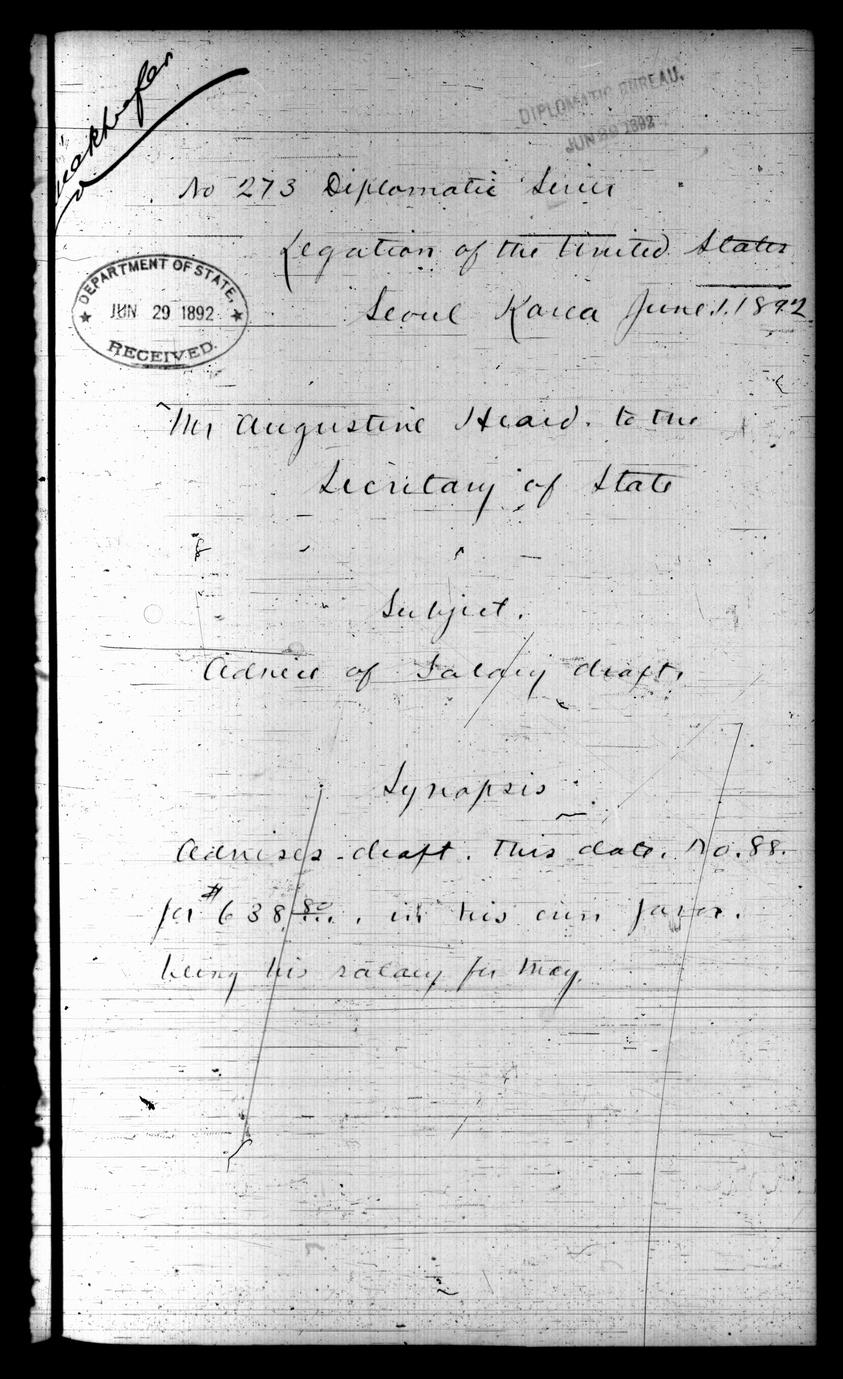 DIPLOMATIC BUREAU.
JUN 29 1892
No 273 Diplomatic Series
Legation of the United States
Seoul Korea June 1. 1892.
DEPARTMENT OF STATE,
JUN 29 1892
RECEIVED.
Mr Augustine Heard. to the
Secretary of State
Subject.
Advice of Salary draft.
Synopsis
Advises draft. this date. No. 88.
for $638 80/100. in his own favor.
being his salary for May.